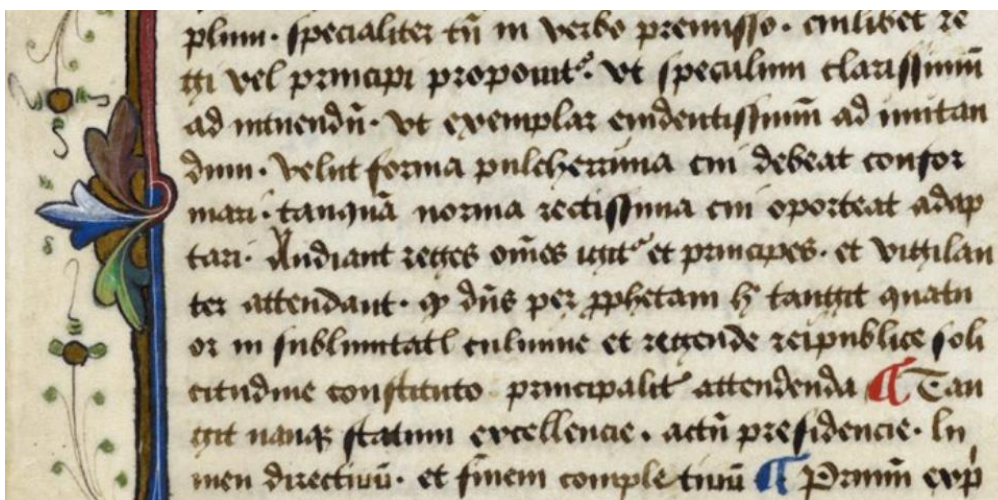 plum · specialiter tñ in verbo premisso · cuilibet re
gi vel principi proponit᷑ · vt speculum clarissimũ
ad intuendũ · vt exemplar euidentissimũ ad imitan
dum · velut forma pulcherrima cui debeat confor
mari · tanquã norma rectissima cui oporteat adap
tari · Audiant reges om̃es igit᷑ et principes · et vigilan
ter attendant · ꝙ dñs per ꝓphetam h̾ tangit quatu
or in sublimitatꝭ culmine et regende reipublice soli
citudine constituto principalit᷑ attendenda ¶ Tan
git nanqꝫ statum excellencie · actũ presidencie · lu
men directiuũ · et finem comple tiuũ ¶ Primũ exp̃